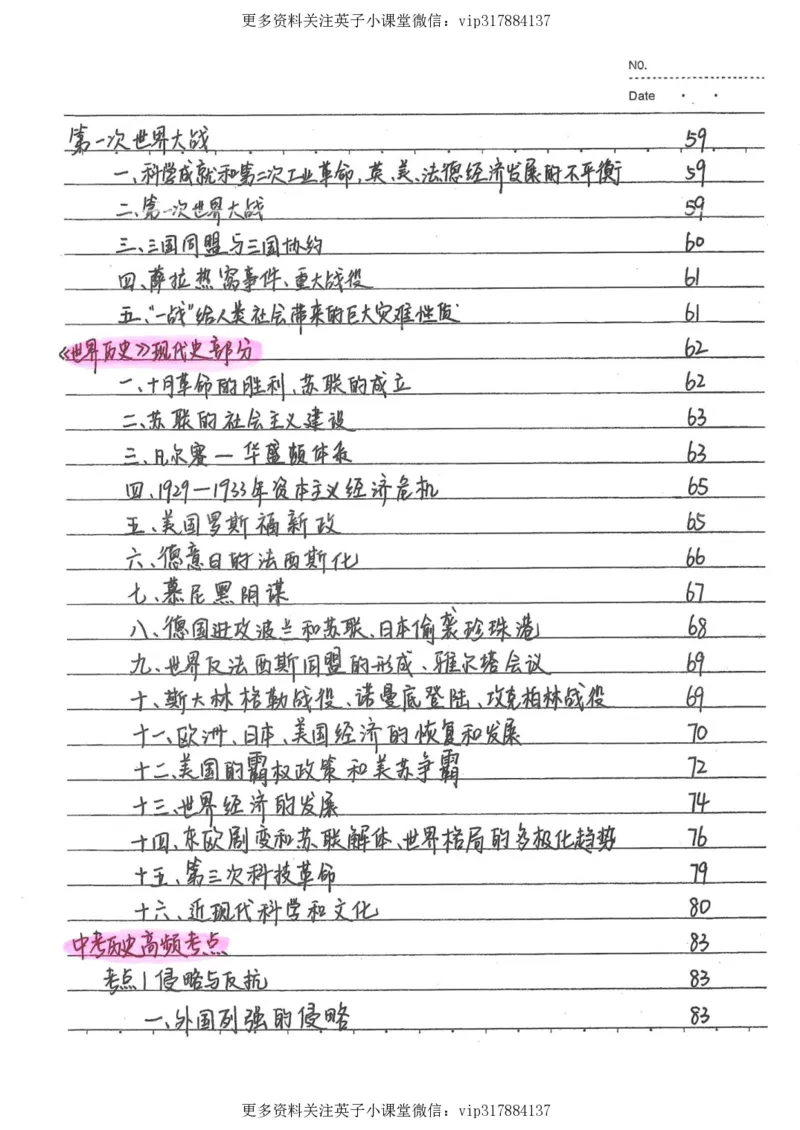 更多资料关注英子小课堂微信：vip317884137
NO.
Date
第一次世界大战 59
一、科学成就和第二次工业革命,英、美、法德经济发展的不平衡 59
二、第一次世界大战 59
三、三国同盟与三国协约 60
四、萨拉热窝事件、重大战役 61
五、"一战"给人类社会带来的巨大灾难性质 61
《世界历史》现代史部分 62
一、十月革命的胜利、苏联的成立 62
二、苏联的社会主义建设 63
三、凡尔赛—华盛顿体系 63
四、1929—1933年资本主义经济危机 65
五、美国罗斯福新政 65
六、德意日的法西斯化 66
七、慕尼黑阴谋 67
八、德国进攻波兰和苏联、日本偷袭珍珠港 68
九、世界反法西斯同盟的形成、雅尔塔会议 69
十、斯大林格勒战役、诺曼底登陆、攻克柏林战役 69
十一、欧洲、日本、美国经济的恢复和发展 70
十二、美国的霸权政策和美苏争霸 72
十三、世界经济的发展 74
十四、东欧剧变和苏联解体、世界格局的多极化趋势 76
十五、第三次科技革命 79
十六、近现代科学和文化 80
中考历史高频考点 83
考点1 侵略与反抗 83
一、外国列强的侵略 83
更多资料关注英子小课堂微信：vip317884137